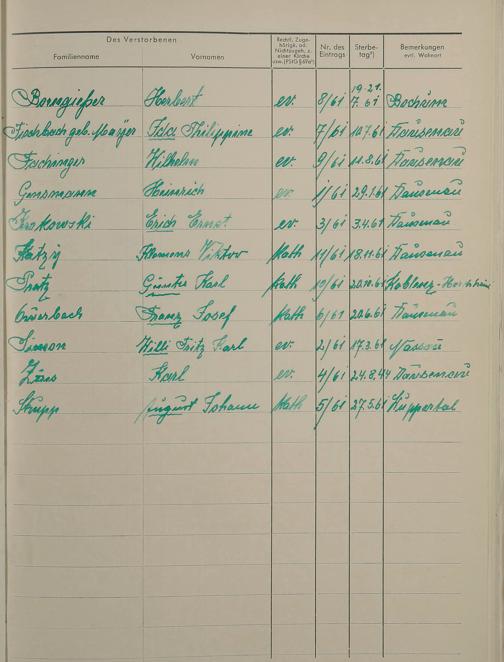 Des Verstorbenen
Familienname Vornamen Rechtl. Zugehörigk. od. Nichtzugeh. z. einer Kirche usw. (PStG § 69a²) Nr. des Eintrags Sterbetag³) Bemerkungen evtl. Wohnort
19.-21.
Borngießer Herbert ev. 8/61 7.61 Bochum
Fischbach geb. Ida Philippine ev. 7/61 10.7.61 Dausenau
Fachinger Wilhelm ev. 9/61 11.8.61 Dausenau
Gensmann Heinrich ev. 1/61 29.1.61 Dausenau
Krakowski Erich Ernst ev. 3/61 3.4.61 Dausenau
Klemens Viktor Kath 11/61 18.11.61 Dausenau
Günter Karl Kath 10/61 Koblenz-
Franz Josef Kath 6/61 20.6.61 Dausenau
Simon Willi Fritz Karl ev. 2/61 17.3.61 Nassau
Karl ev. 4/61 24.8.44 Dausenau
Strupp August Johann Kath 5/61 27.5.61